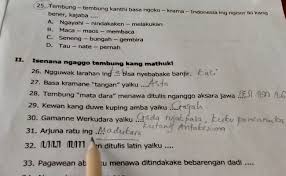 25. Tembung – tembung kanthi basa ngoko – krama – Indonesia ing ngisor iki kang
bener, kajaba ....
A. Ngayahi – nindakaken – melakukan
B. Maca – maos – membaca
C. Seneng – bungah – gembira
D. Tau – nate – pernah
II. Isenana nganggo tembung kang mathuk!
26. Ngguwak larahan ing bisa nyebabake banjir. Kali
27. Basa kramane "tangan" yaiku .... Asta
28. Tembung "mata dara" menawa ditulis nganggo aksara jawa
29. Kewan kang duwe kuping amba yaiku Gajah
30. Gamanne Werkudara yaiku Gada rujakbala, kuku pancanaka
31. Arjuna ratu ing Madukara
kutang Antakusuma
32. ditulis latin yaiku ....
33. Pagawean menawa ditindakake bebarengan dadi ....